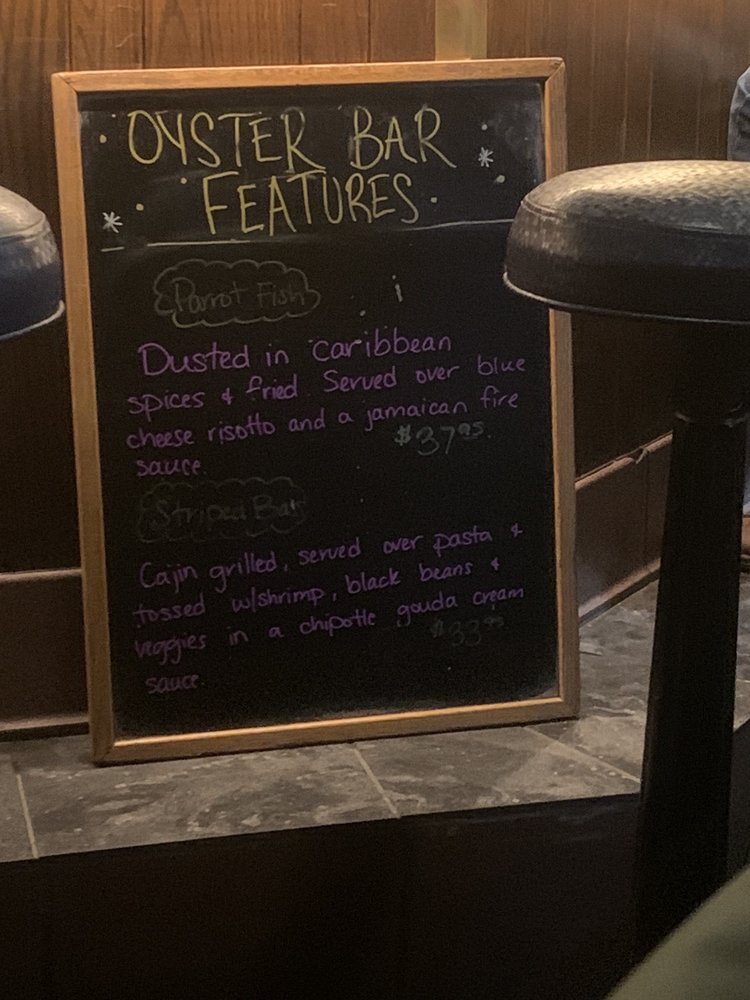 OYSTER BAR
FEATURES
Parrot Fish
Dusted in caribbean
spices & fried Served over blue
cheese risotto and a jamaican fire
sauce.
$37.95.
Striped Bass
Cajin grilled, served over pasta &
tossed w/shrimp, black beans &
veggies in a chipotle gouda cream
sauce
$33.95